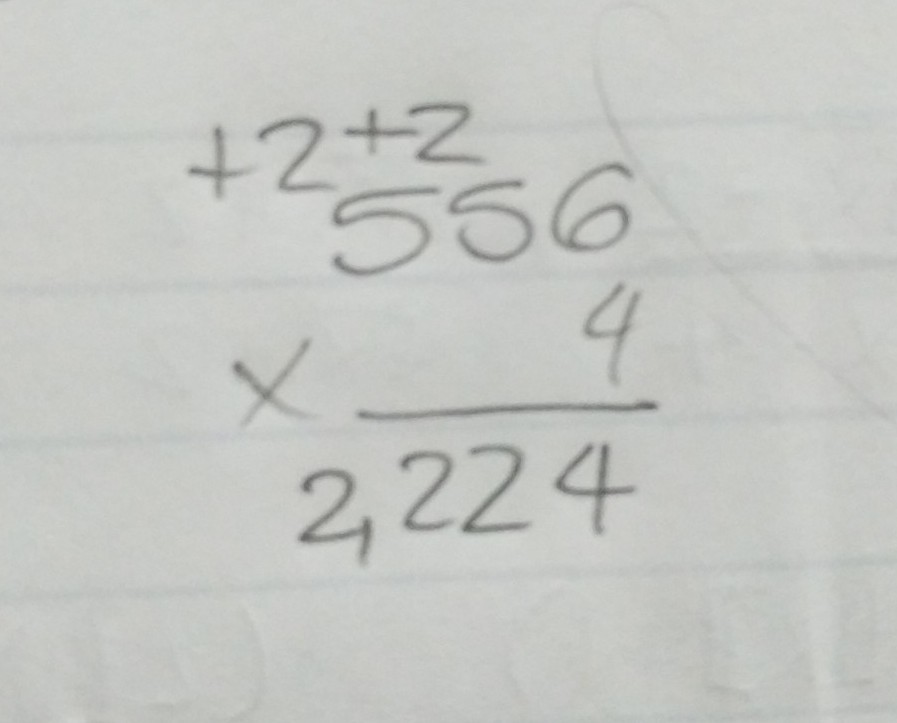 +2 +2
556
4
×
2,224